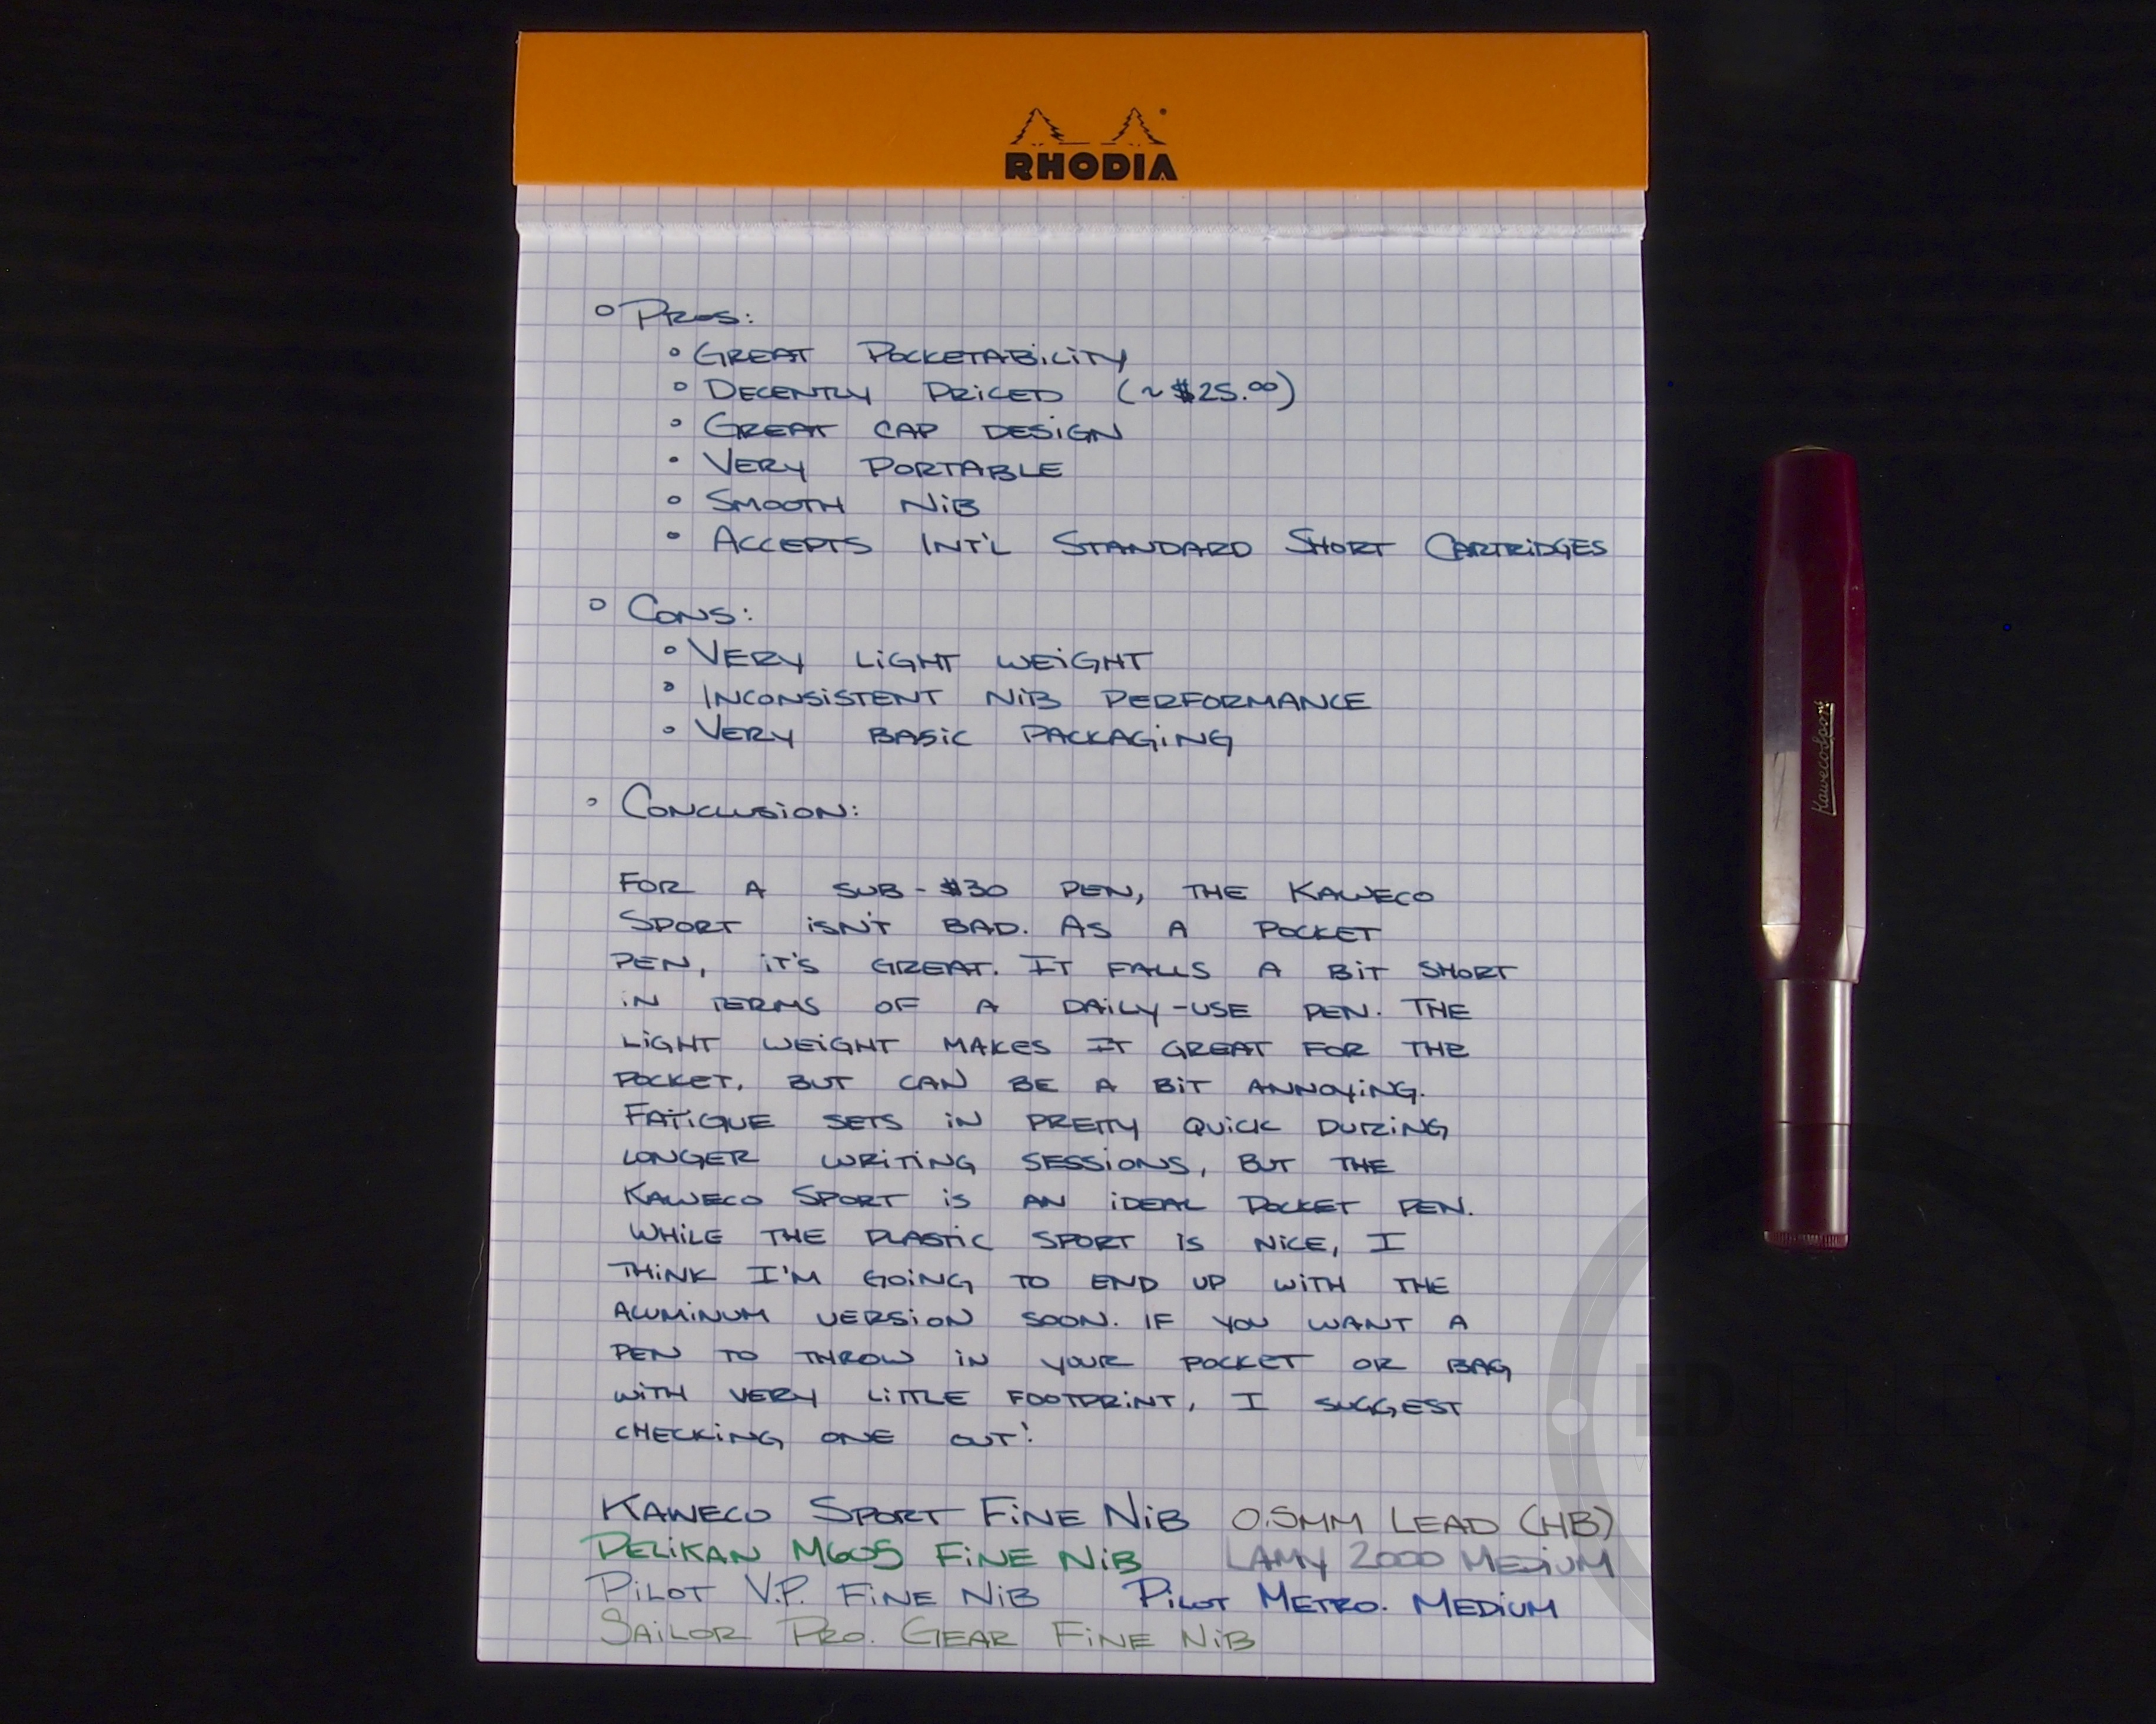 RHODIA
Pros:
Great Pocketability
Decently Priced (~$25.00)
Great cap design
Very Portable
Smooth Nib
Accepts Int'l Standard Short Cartridges
Cons:
Very Light Weight
Inconsistent Nib Performance
Very Basic Packaging
Conclusion:
For a sub-$30 pen, the Kaweco
Sport isn't bad. As a pocket
pen, it's great. It falls a bit short
in terms of a daily-use pen. The
light weight makes it great for the
pocket, but can be a bit annoying.
Fatigue sets in pretty quick during
longer writing sessions, but the
Kaweco Sport is an ideal pocket pen.
While the plastic Sport is nice, I
think I'm going to end up with the
aluminum version soon. If you want a
pen to throw in your pocket or bag
with very little footprint, I suggest
checking one out!
Kaweco Sport Fine Nib 0.5mm Lead (HB)
Pelikan M605 Fine Nib Lamy 2000 Medium
Pilot V.P. Fine Nib Pilot Metro. Medium
Sailor Pro. Gear Fine Nib
KawecoSport